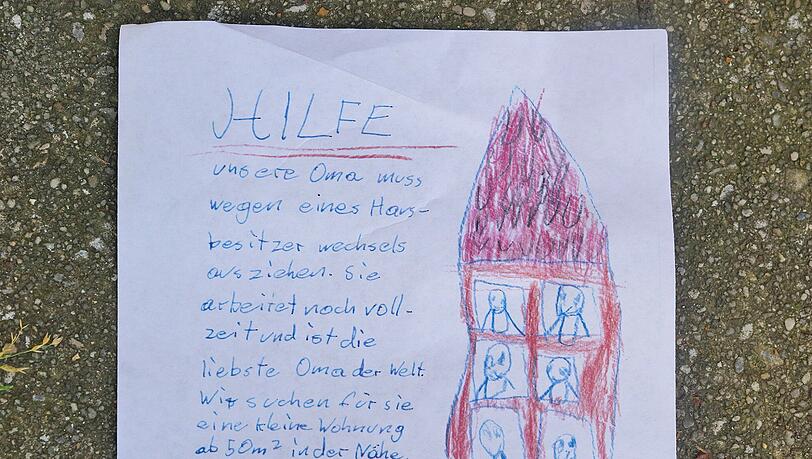 HILFE
unsere Oma muss
wegen eines Haus-
besitzer wechsels
ausziehen. Sie
arbeitet noch voll-
zeit und ist die
liebste Oma der Welt.
Wir suchen für sie
eine kleine Wohnung
ab 50m² in der Nähe.